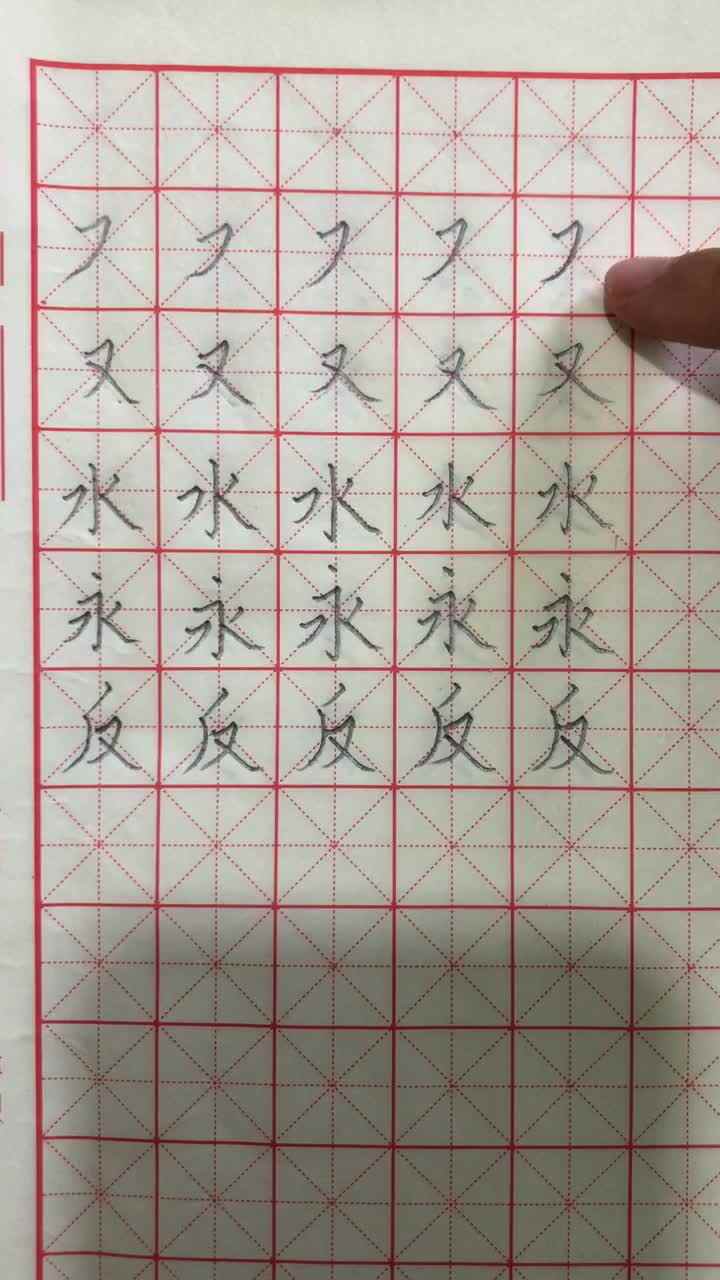 ㇇ ㇇ ㇇ ㇇ ㇇
又 又 又 又 又
水 水 水 水 水
永 永 永 永 永
反 反 反 反 反